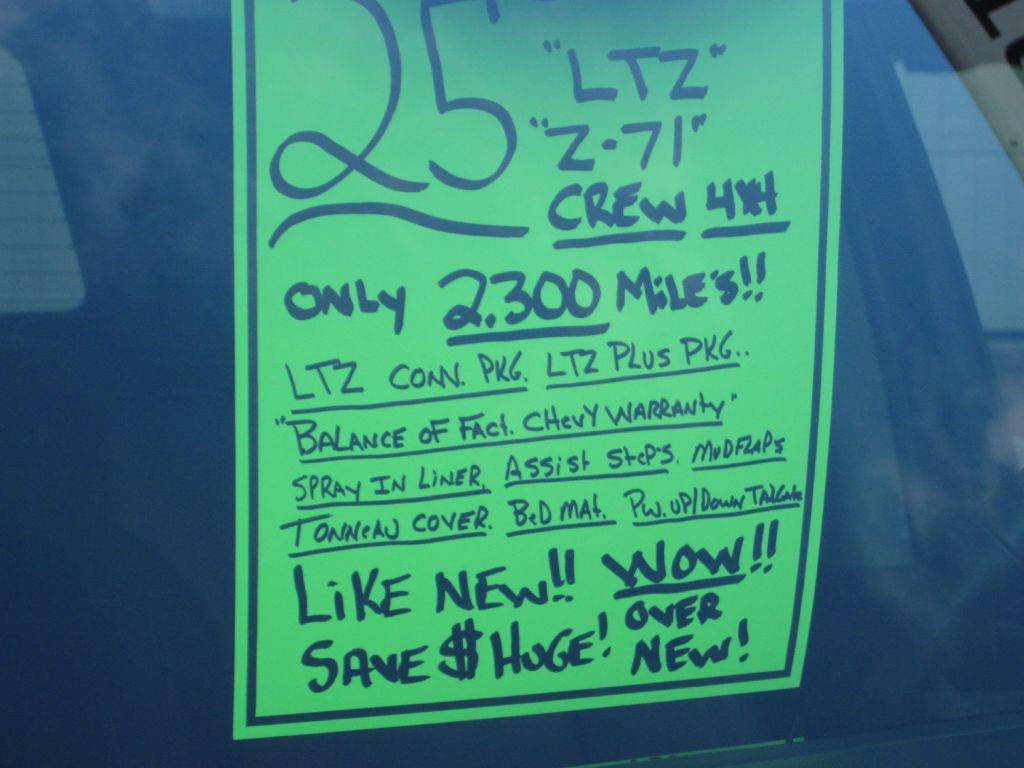 25
"LTZ"
"Z-71"
CREW 4X4
ONLY 2.300 MiLE'S!!
LTZ CONV. PKG. LTZ PLUS PKG..
"BALANCE OF FACT. CHEVY WARRANTY"
SPRAY IN LINER. ASSIST STEP'S. MUDFLAPS
TONNEAU COVER. BED MAT. PW. UP/DOWN TAILGATE
LiKE NEW!! WOW!!
SAVE $ HUGE! OVER
NEW!